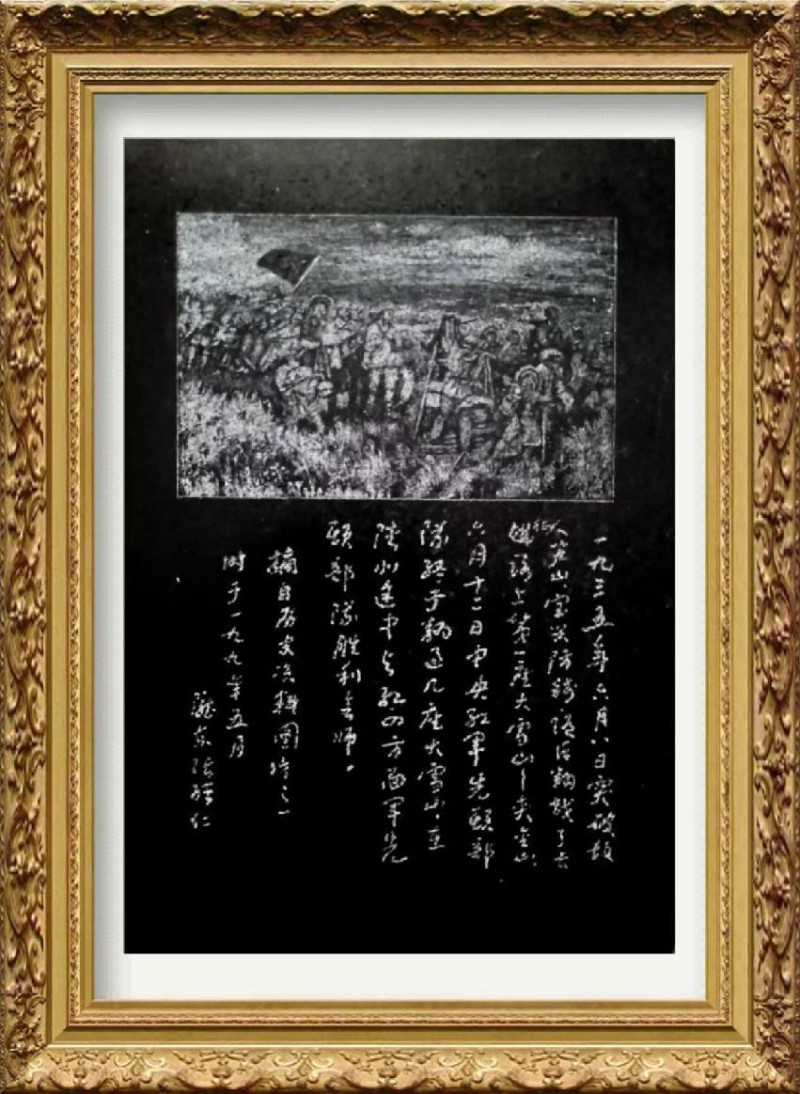 一九三五年六月八日突破敌
人芦山宝兴防线随后翻越了
路上第一座大雪山—夹金山
六月十二日中央红军先头部
队终于翻过几座大雪山，在
北途中与红四方面军先
头部队胜利会师。
摘自历史资料图片之一
时于一九九年五月
东张仁